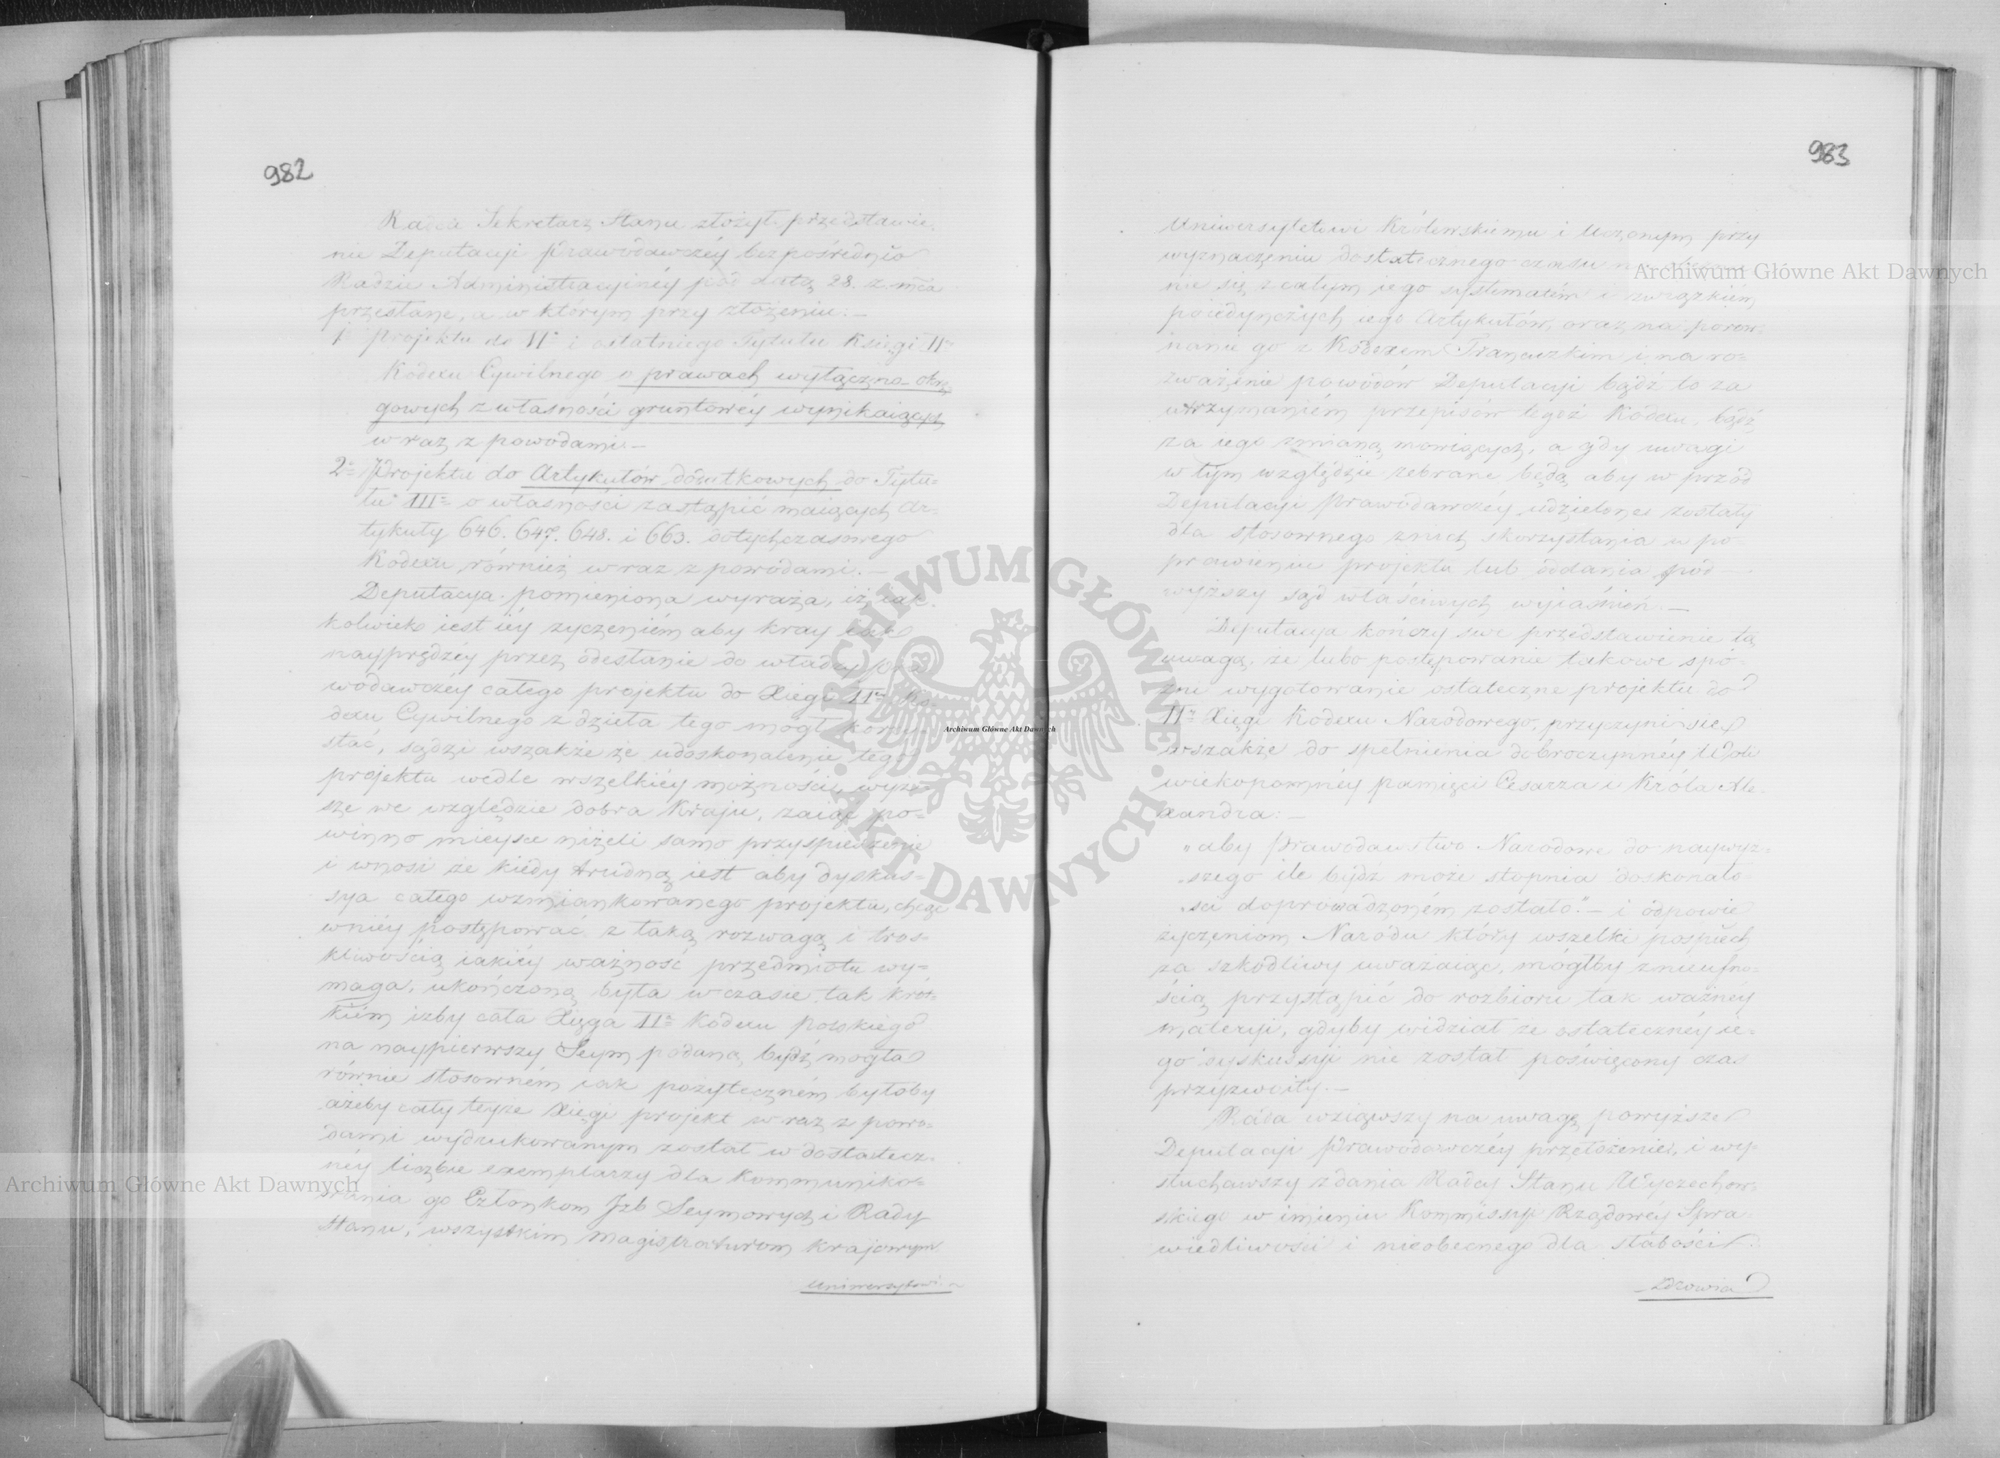 982
Radca Sekretarz Stanu złożył przedstawie,
nie Deputacyi Prawodawczéy bezpośrednio
Radzie Administracyinéy pod datą 28. z. mca
przesłane, a w którym przy złożeniu: —
1 Projektu do IIo i ostatniego Tytułu Księgi IIéy
Kodexu Cywilnego o prawach wyłączno-okrę,
gowych z własności gruntowéy wynikaiących
wraz z powodami. —
2o Projektu do Artykułów dodatkowych do Tytu-
łu III o własności zastąpić maiących ar-
tykuły 646. 647. 648. i 663. dotychczasowego
Kodexu również wraz z powodami. —
Deputacya pomieniona wyraża, iż iak,
kolwiek iest iéy życzeniém aby kray iak
nayprędzéy przez odesłanie do władzy Pra
wodawczéy całego projektu do Xięgi IIéy Ko,
dexu Cywilnego z dzieła tego mógł korzy-
stać, sądzi wszakże że udoskonalenie tego
projektu wedle wszelkiéy możności, wyż-
sze we względzie dobra Kraju, zaiąć po-
winno mieysce niżeli samo przyspieszenie
i wnosi że kiedy trudną iest aby dyskus-
sya całego wzmiankowanego projektu, chcąc
wniéy postępować z taką rozwagą i tros-
kliwością iakiéy ważność przedmiotu wy-
maga, ukończoną była w czasie tak krót-
kim iżby cała Xięga IIa Kodexu Polskiego
na naypierwszy Seym podaną bydź mogła
równie stosowném iak pożyteczném byłoby
ażeby cały teyże Xięgi projekt wraz z powo-
dami wydrukowanym został w dostatecz-
néy liczbie exemplarzy dla kommuniko-
wania go Członkom Jzb Seymowych i Rady
Stanu, i wszystkim magistraturom krajowym
Uniwersytetowi
983
Uniwersytetowi Królewskiemu i Uczonym przy
wyznaczeniu dostatecznego czasu
nie się z całym iego systematém i związkiem
poiedynczych iego Artykułów, oraz na porów,
naniu go z Kodexem Francuzkim i na ro-
zważenie powodów Deputacyi bądź to za
utrzymaniém przepisów tegoż Kodexu, bądź
za iego zmianą mowiących, a gdy uwagi
w tym względzie zebrane będą aby w przód
Deputacyi Prawodawczéy udzielone zostały
dla stosownego z nich skorzystania w po
prawieniu projektu lub oddania pod
wyższy sąd właściwych wyiaśnień. —
Deputacya kończy swe przedstawienie tą
uwagą, że lubo postępowanie takowe spó-
źni wygotowanie ostateczne projektu do
IIéy Xięgi Kodexu Narodowego, przyczyni się
wszakże do spełnienia dobroczynnéy Woli
wiekopomnéy pamięci Cesarza i Króla Ale-
xandra: —
„aby Prawodawstwo Narodowe do naywyż-
„szego ile bydź może stopnia doskonało-
„ści doprowadzoném zostało." — i odpowie
życzeniom Narodu który wszelki pospiech
za szkodliwy uważaiąc, mógłby z nieufno-
ścią przystąpić do rozbioru tak ważnéy
materyi, gdyby widział że ostatecznéy ie-
go dyskussyi nie został poświęcony czas
przyzwoity. —
Rada wziąwszy na uwagę powyższe
Deputacyi Prawodawczéy przełożenie, i wy
słuchawszy zdania Radcy Stanu Wyczechow-
skiego w imieniu Kommissyi Rządowéy Spra
wiedliwości i nieobecnego dla słabości
zdrowia
Archiwum Główne Akt Dawnych
Archiwum Główne Akt Dawnych
Archiwum Główne Akt Dawnych
ARCHIWUM GŁÓWNE AKT DAWNYCH